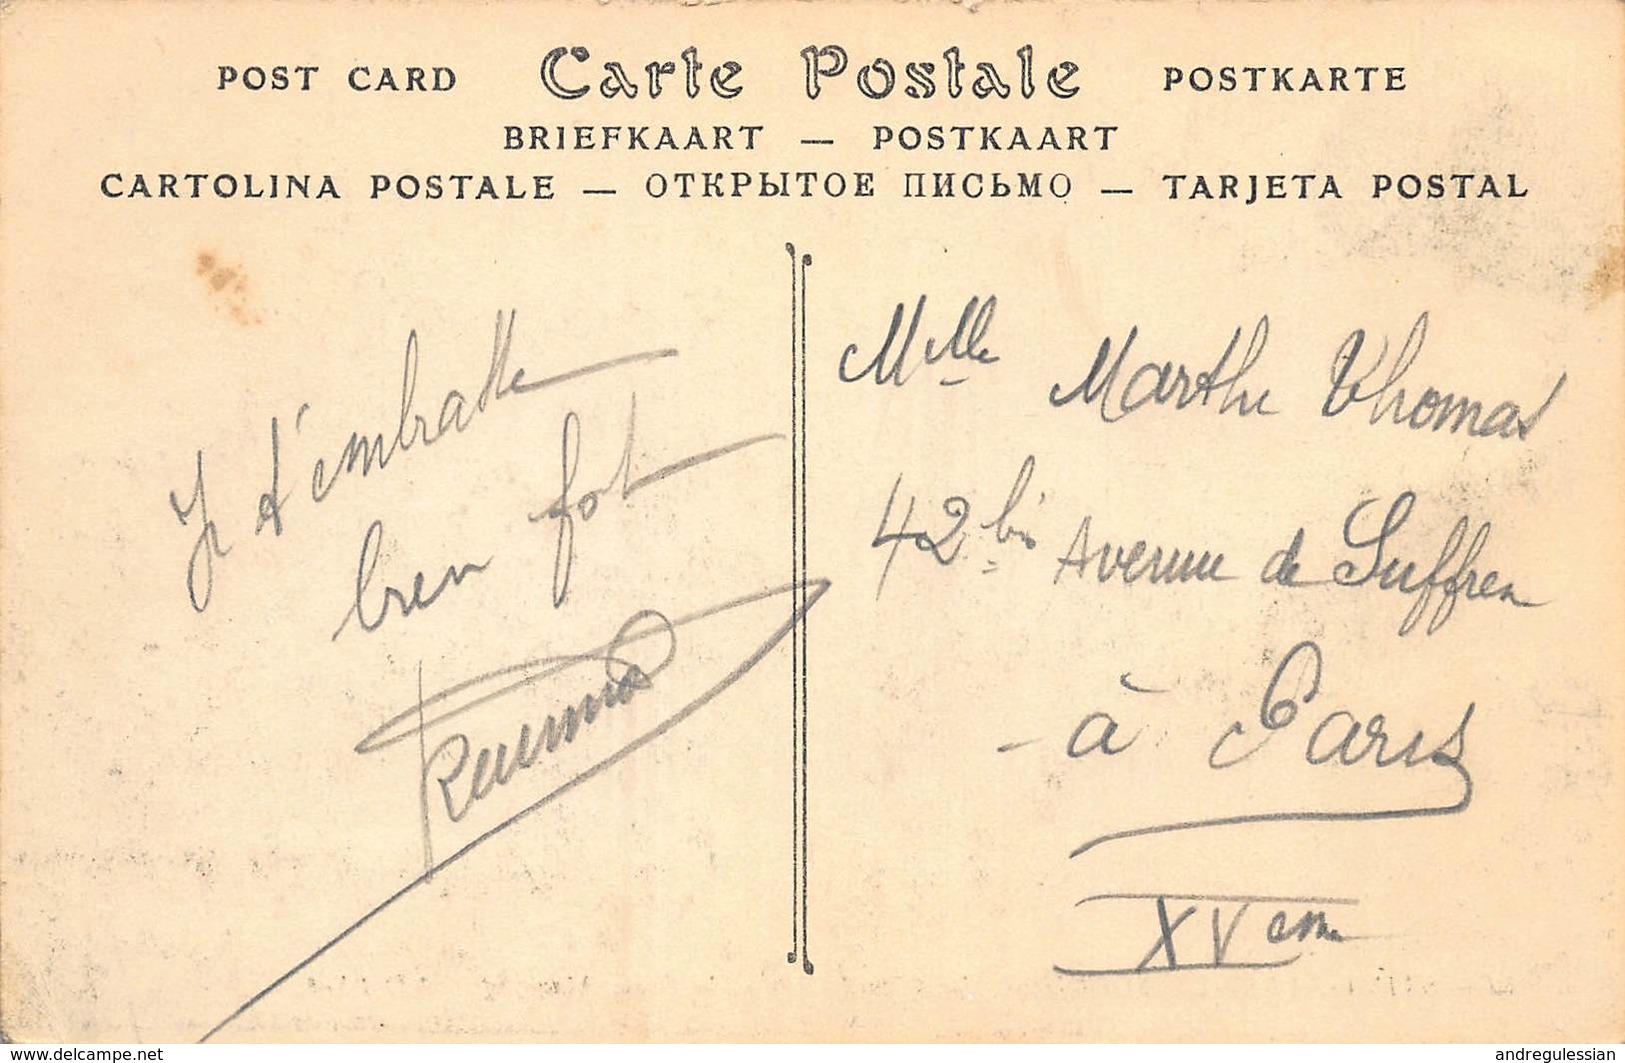 POST CARD Carte Postale POSTKARTE
BRIEFKAART — POSTKAART
CARTOLINA POSTALE — ОТКРЫТОЕ ПИСЬМО — TARJETA POSTAL
Je t'embrasse
bien fort
Mlle Marthe Thomas
42 bis Avenue de Suffren
- à Paris
XVem
www.delcampe.net
andregulessian